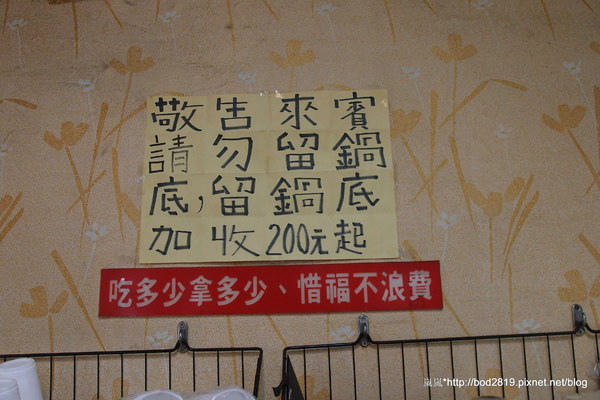 敬告來賓
請勿留鍋
底,留鍋底
加收200元起
吃多少拿多少、惜福不浪費
嵐嵐*http://bod2819.pixnet.net/blog